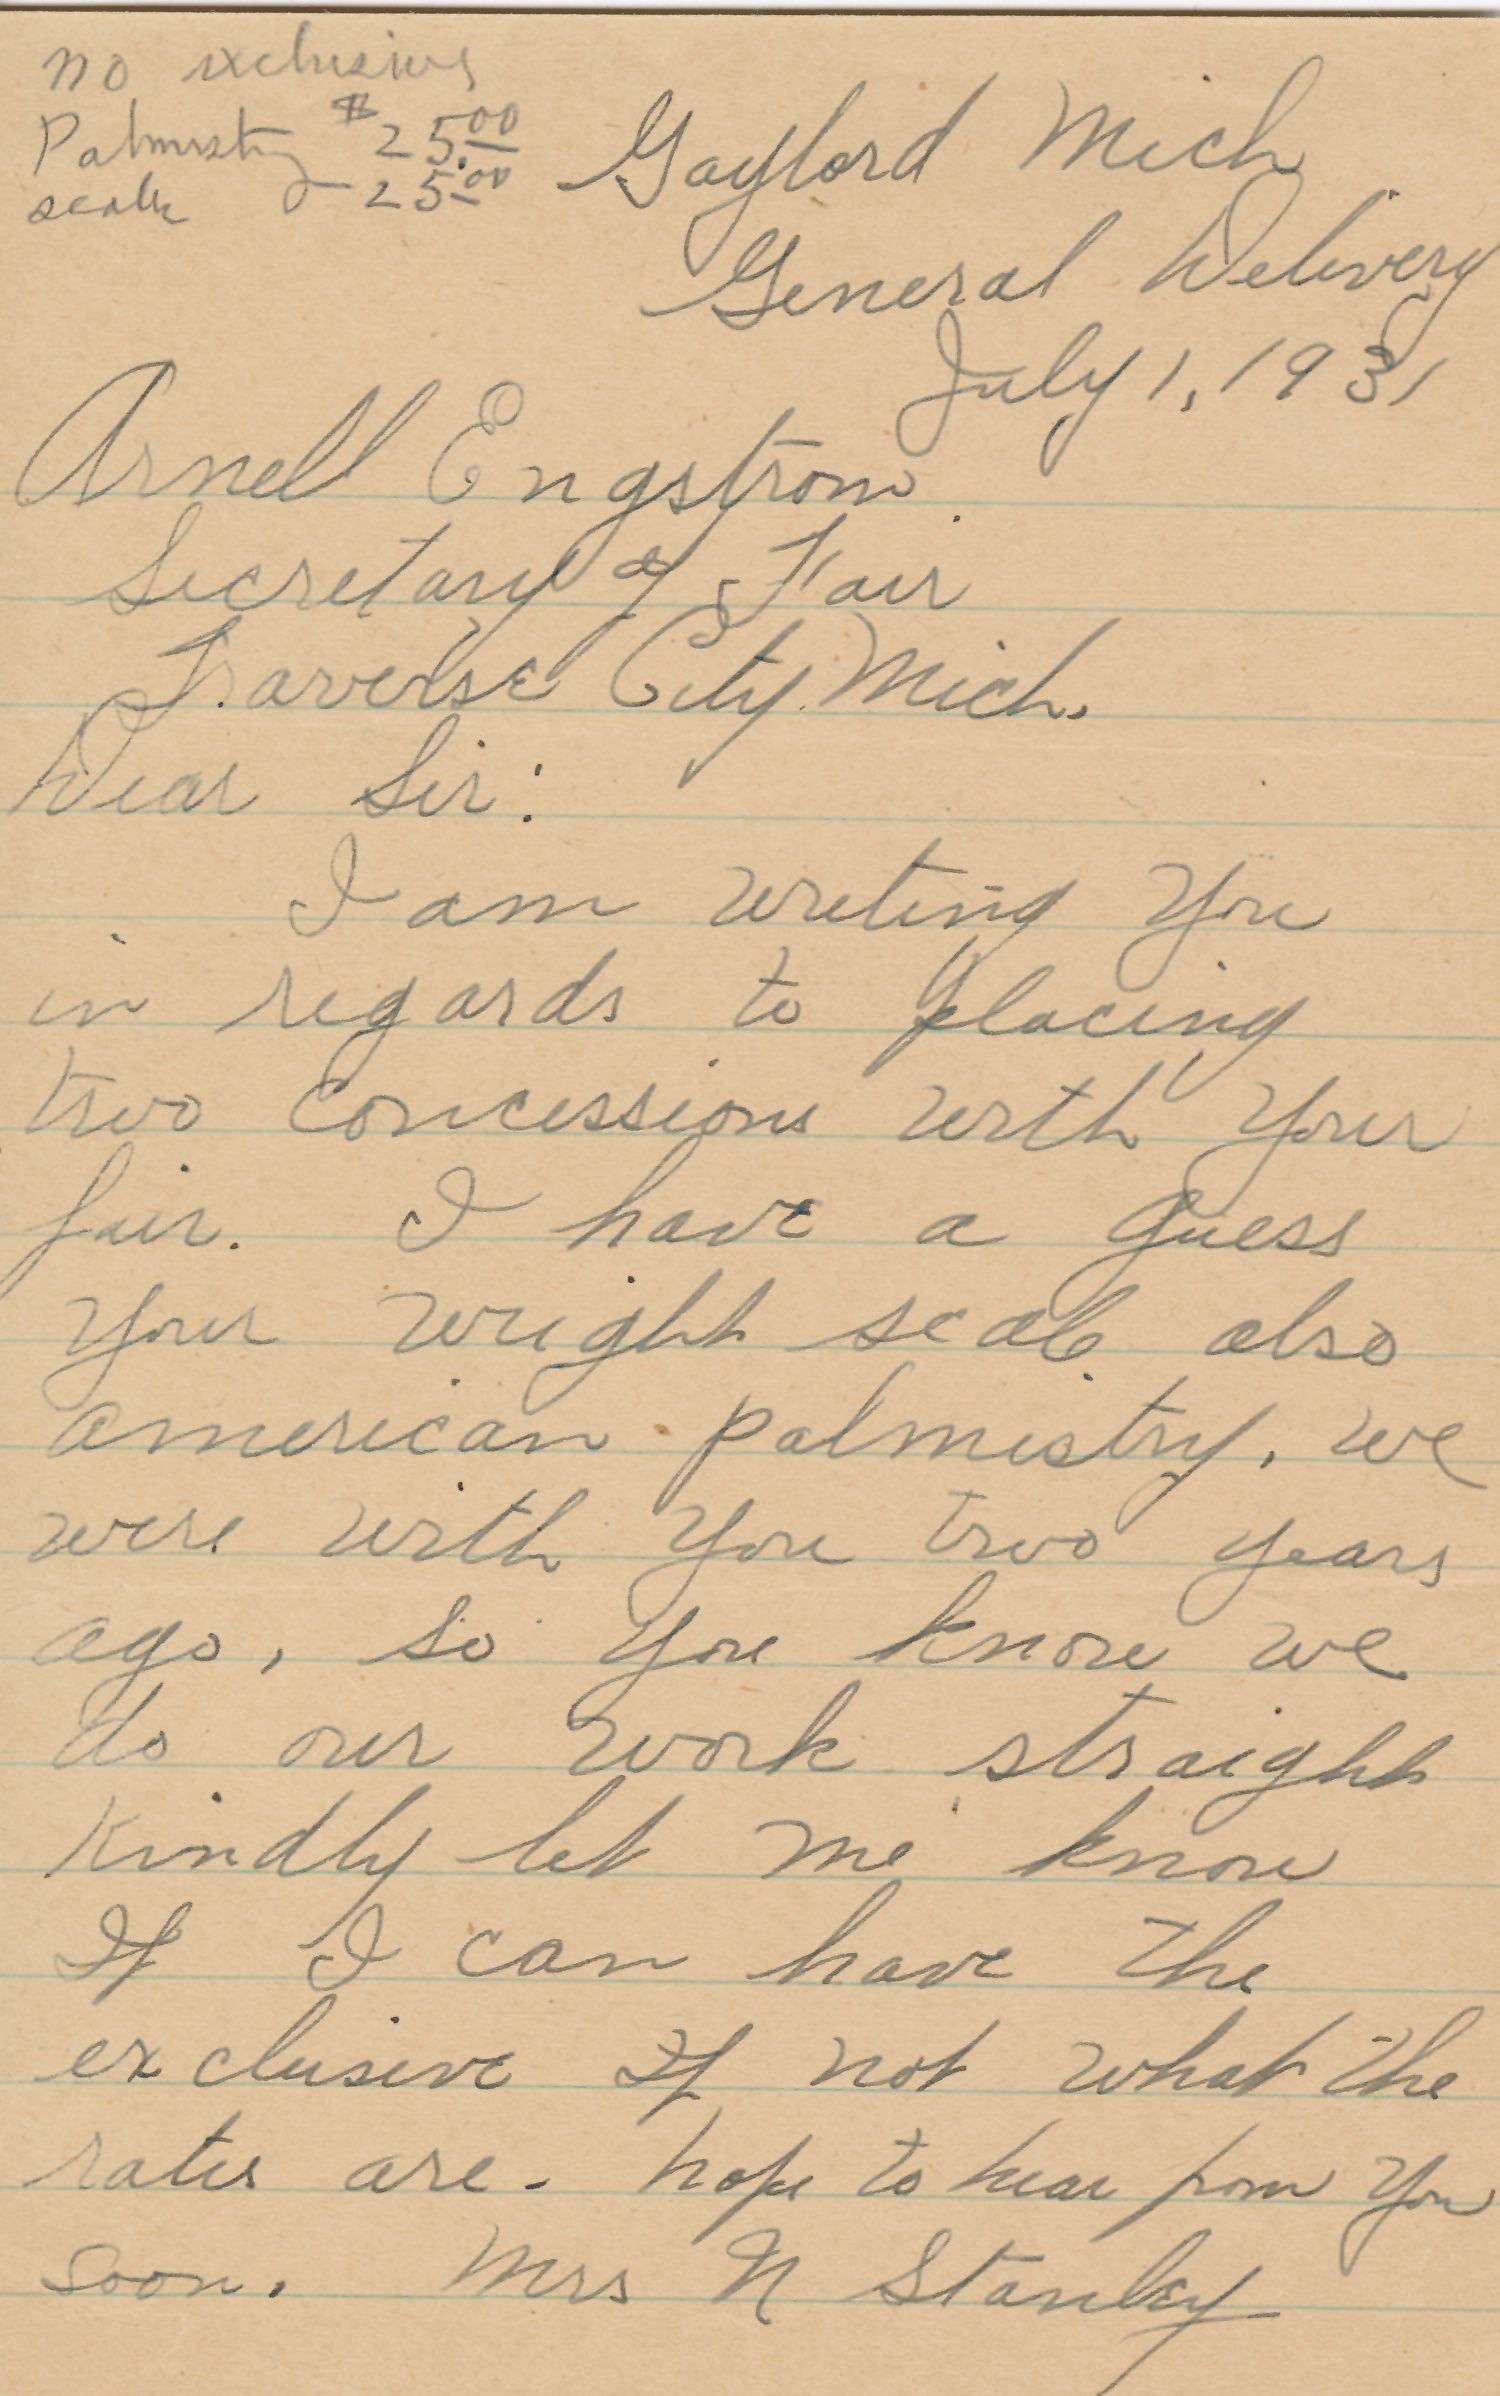 no exclusives
Palmistry $25.00
scale 25.00
Gaylord Mich
General Delivery
July 1, 1931
Arnell Engstrom
Secretary of Fair
Traverse City Mich.
Dear Sir:
I am writing you
in regards to placing
two concessions with your
fair. I have a guess
your weight scale also
american palmistry. we
were with you two years
ago, so you know we
do our work straight
Kindly let me know
If I can have the
exclusive If not what the
rates are - hope to hear from you
soon. Mrs N Stanley